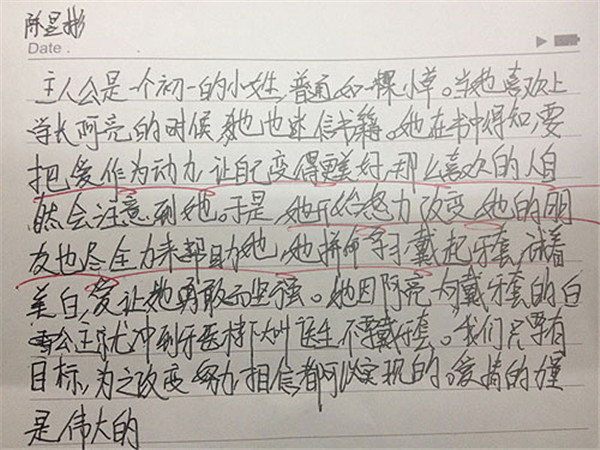 陈昱彬
Date .
主人公是一个初一的小姓,普通如一棵小草。当她喜欢上
学长阿亮的时候她也迷信书籍。她在书中得知,要
把爱作为动力,让自己变得更美好,那么喜欢的人自
然会注意到她。于是,她开始努力改变,她的朋
友也尽全力来帮助她,她拼命学习,戴起牙套,试着
美白,爱让她勇敢而坚强。她因阿亮为戴牙套的白
雪公主就冲到牙医楼下大叫医生不要戴牙套。我们只要有
目标,为之改变努力,相信都可以实现的。爱情的力量
是伟大的